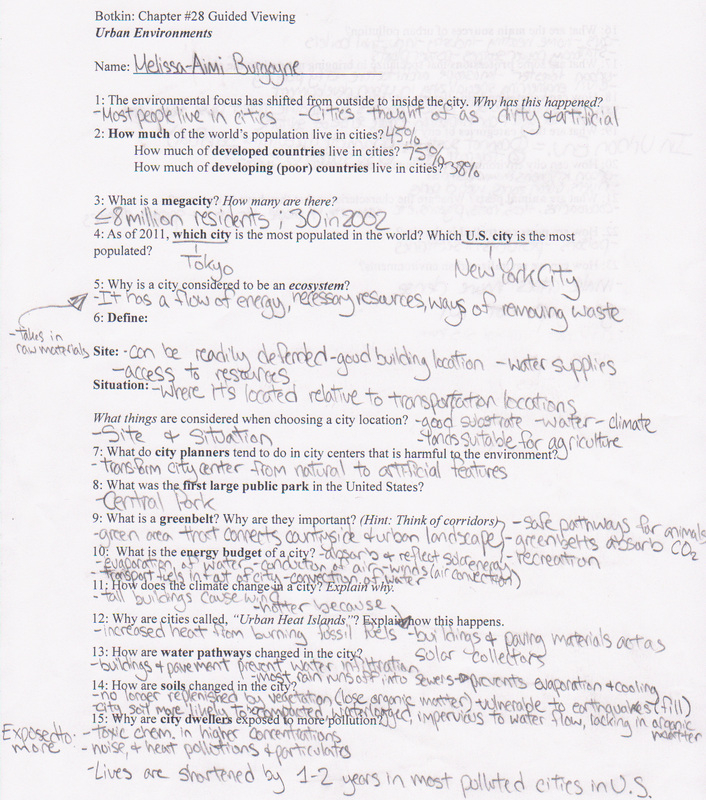 Botkin: Chapter #28 Guided Viewing
Urban Environments
Name: Melissa-Aimi Burgoyne
1: The environmental focus has shifted from outside to inside the city. Why has this happened?
-Most people live in cities -Cities thought of as dirty & artificial
2: How much of the world's population live in cities? 45%
How much of developed countries live in cities? 75%
How much of developing (poor) countries live in cities? 38%
3: What is a megacity? How many are there?
≤8 million residents ; 30 in 2002
4: As of 2011, which city is the most populated in the world? Which U.S. city is the most
populated?
Tokyo
New York City
5: Why is a city considered to be an ecosystem?
-It has a flow of energy, necessary resources, ways of removing waste
-takes in
raw materials
6: Define:
Site: -can be readily defended -good building location -water supplies
-access to resources
Situation: -where it's located relative to transportation locations
What things are considered when choosing a city location? -good substrate -water -climate
-Site & Situation -lands suitable for agriculture
7: What do city planners tend to do in city centers that is harmful to the environment?
-transform city center from natural to artificial features
8: What was the first large public park in the United States?
-Central Park
9: What is a greenbelt? Why are they important? (Hint: Think of corridors) -safe pathways for animals
-green area that connects countryside & urban landscape -greenbelts absorb CO2
-recreation
10: What is the energy budget of a city? -absorb & reflect solar energy
-evaporation of water -conduction of air -winds (air convection)
-transport fuels in & out of city -convection of water
11: How does the climate change in a city? Explain why.
-tall buildings cause wind
-hotter because
12: Why are cities called, "Urban Heat Islands"? Explain how this happens.
-increased heat from burning fossil fuels -buildings & paving materials act as
solar collectors
13: How are water pathways changed in the city?
-buildings & pavement prevent water infiltration
-most rain runs off into sewers→prevents evaporation & cooling
14: How are soils changed in the city?
-no longer replenished by vegetation (lose organic matter) -vulnerable to earthquakes (fill)
-city soil more likely to be compacted, interlarged, impervious to water flow, lacking in organic
matter
15: Why are city dwellers exposed to more pollution?
Exposed to
more
-toxic chem. in higher concentrations
-noise, & heat pollutions & particulates
-Lives are shortened by 1-2 years in most polluted cities in U.S.